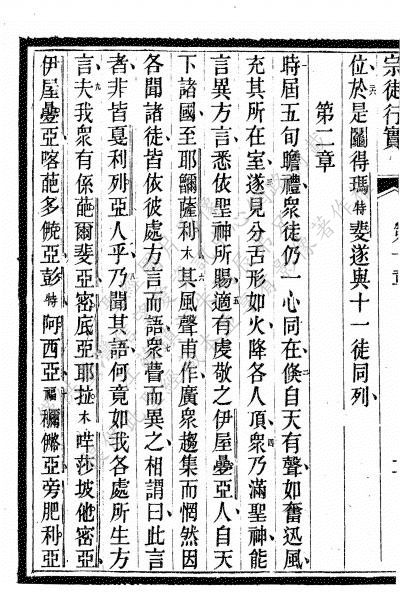 宗徒行實
第一章
位於是鬮得瑪特斐遂與十一徒同列
第二章
時屆五旬瞻禮衆徒仍一心同在倐自天有聲如奮迅風
充其所在室遂見分舌形如火降各人頂衆乃滿聖神能
言異方言悉依聖神所賜適有虔敬之伊屋疊亞人自天
下諸國至耶爾薩利木其風聲甫作廣衆趨集而惘然因
各聞諸徒皆依彼處方言而語衆瞢而異之相謂曰此言
者非皆戛利列亞人乎乃聞其語何竟如我各處所生方
言夫我衆有係葩爾斐亞密底亞耶拉木哶莎坡他密亞
伊屋疊亞喀葩多儌亞彭特阿西亞福穪儵亞旁肥利亞